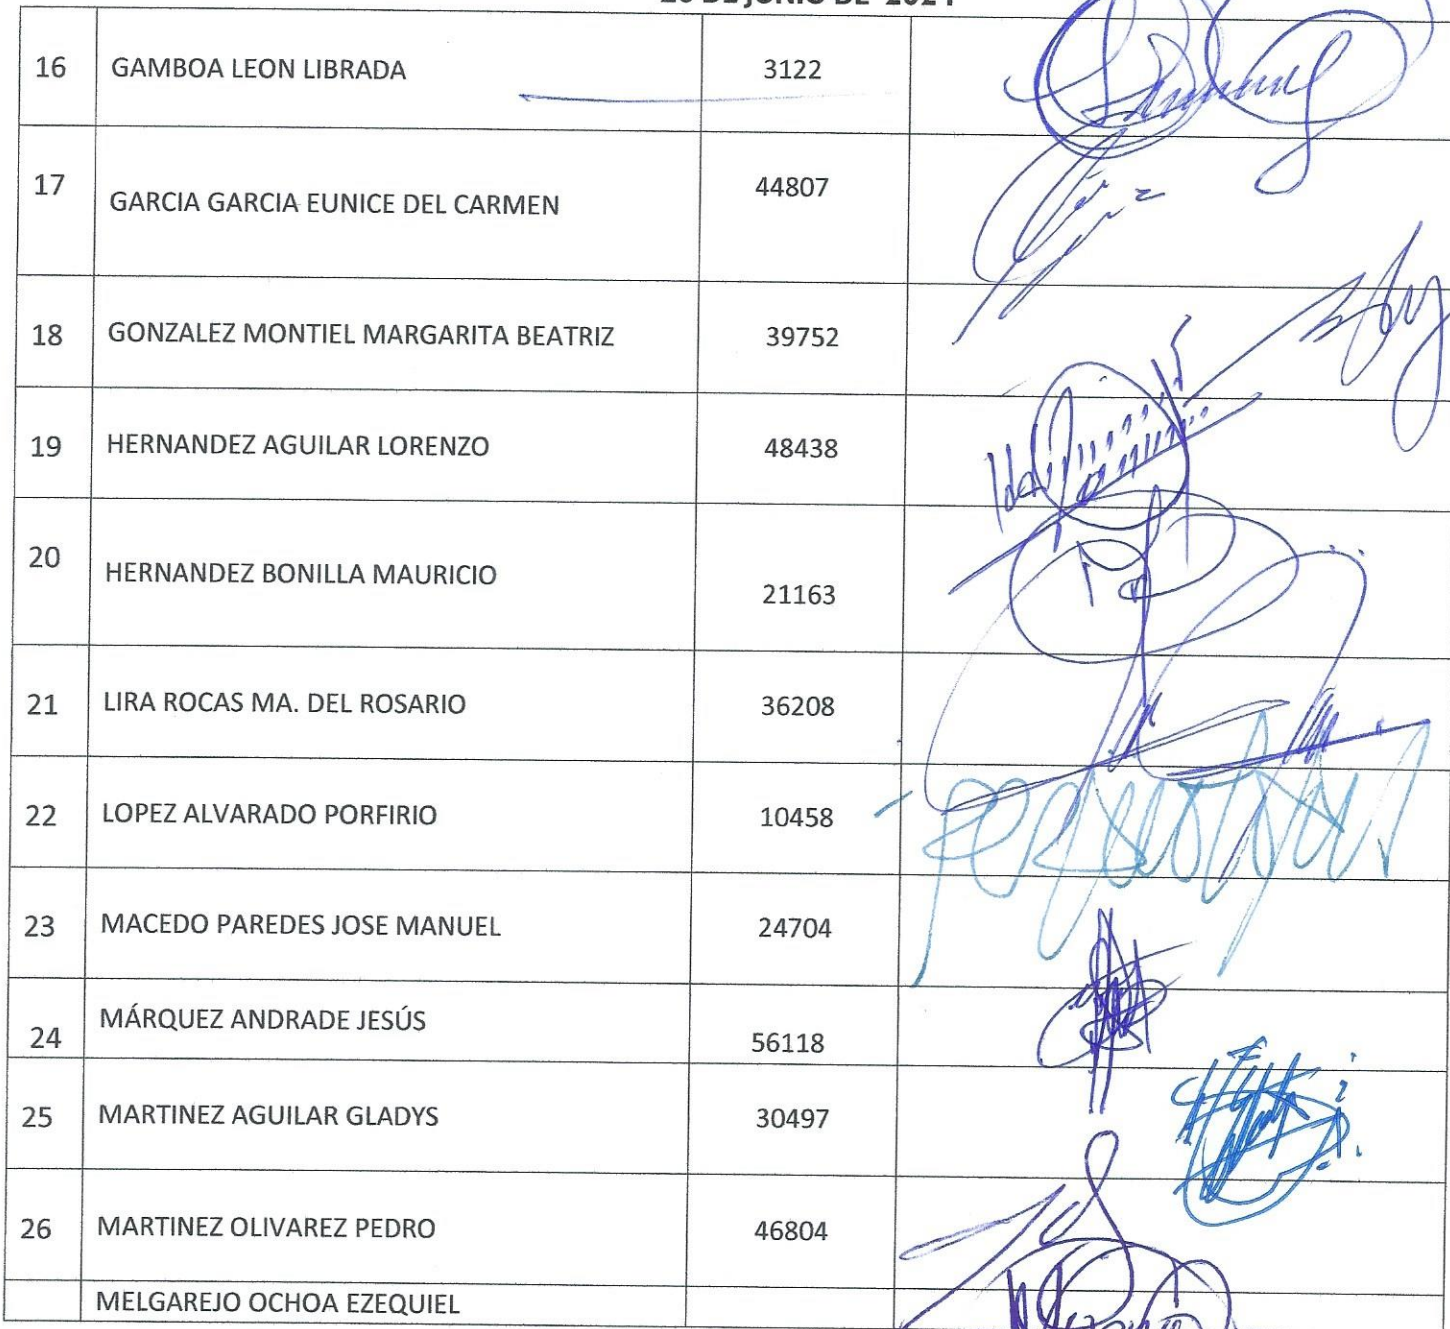 16 GAMBOA LEON LIBRADA 3122
17 GARCIA GARCIA EUNICE DEL CARMEN 44807
18 GONZALEZ MONTIEL MARGARITA BEATRIZ 39752
19 HERNANDEZ AGUILAR LORENZO 48438
20 HERNANDEZ BONILLA MAURICIO 21163
21 LIRA ROCAS MA. DEL ROSARIO 36208
22 LOPEZ ALVARADO PORFIRIO 10458
23 MACEDO PAREDES JOSE MANUEL 24704
24 MÁRQUEZ ANDRADE JESÚS 56118
25 MARTINEZ AGUILAR GLADYS 30497
26 MARTINEZ OLIVAREZ PEDRO 46804
MELGAREJO OCHOA EZEQUIEL